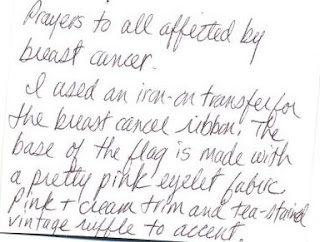 Prayers to all affected by
breast cancer.
I used an iron-on transfer for
the breast cancer ribbon. The
base of the flag is made with
a pretty pink eyelet fabric.
Pink + cream trim and tea-stained
vintage ruffle to accent.